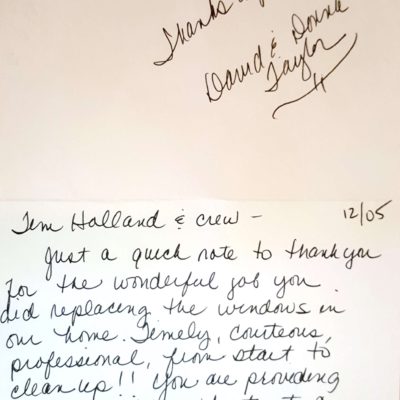 Thanks
David & Donna
Taylor
Tim Holland & crew -
12/05
Just a quick note to thank you
for the wonderful job you
did replacing the windows in
our home. Timely, courteous,
professional, from start to
clean up!! You are providing